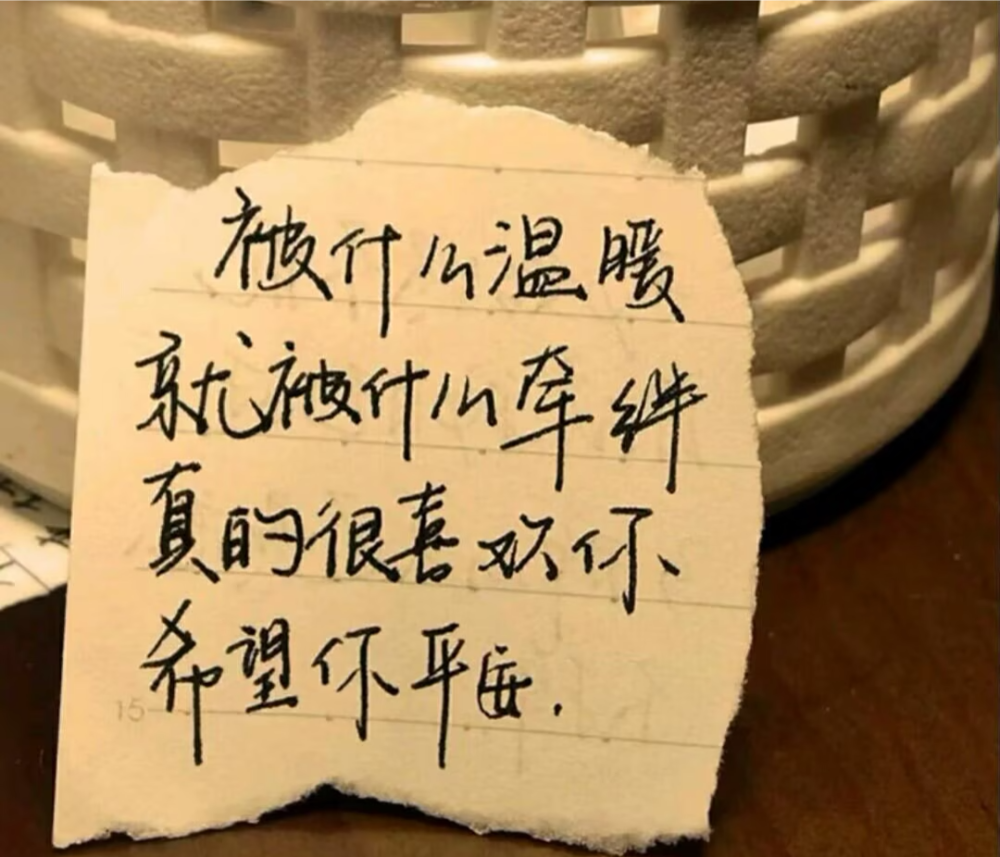 被什么温暖
就被什么牵绊
真的很喜欢你
希望你平安.
15